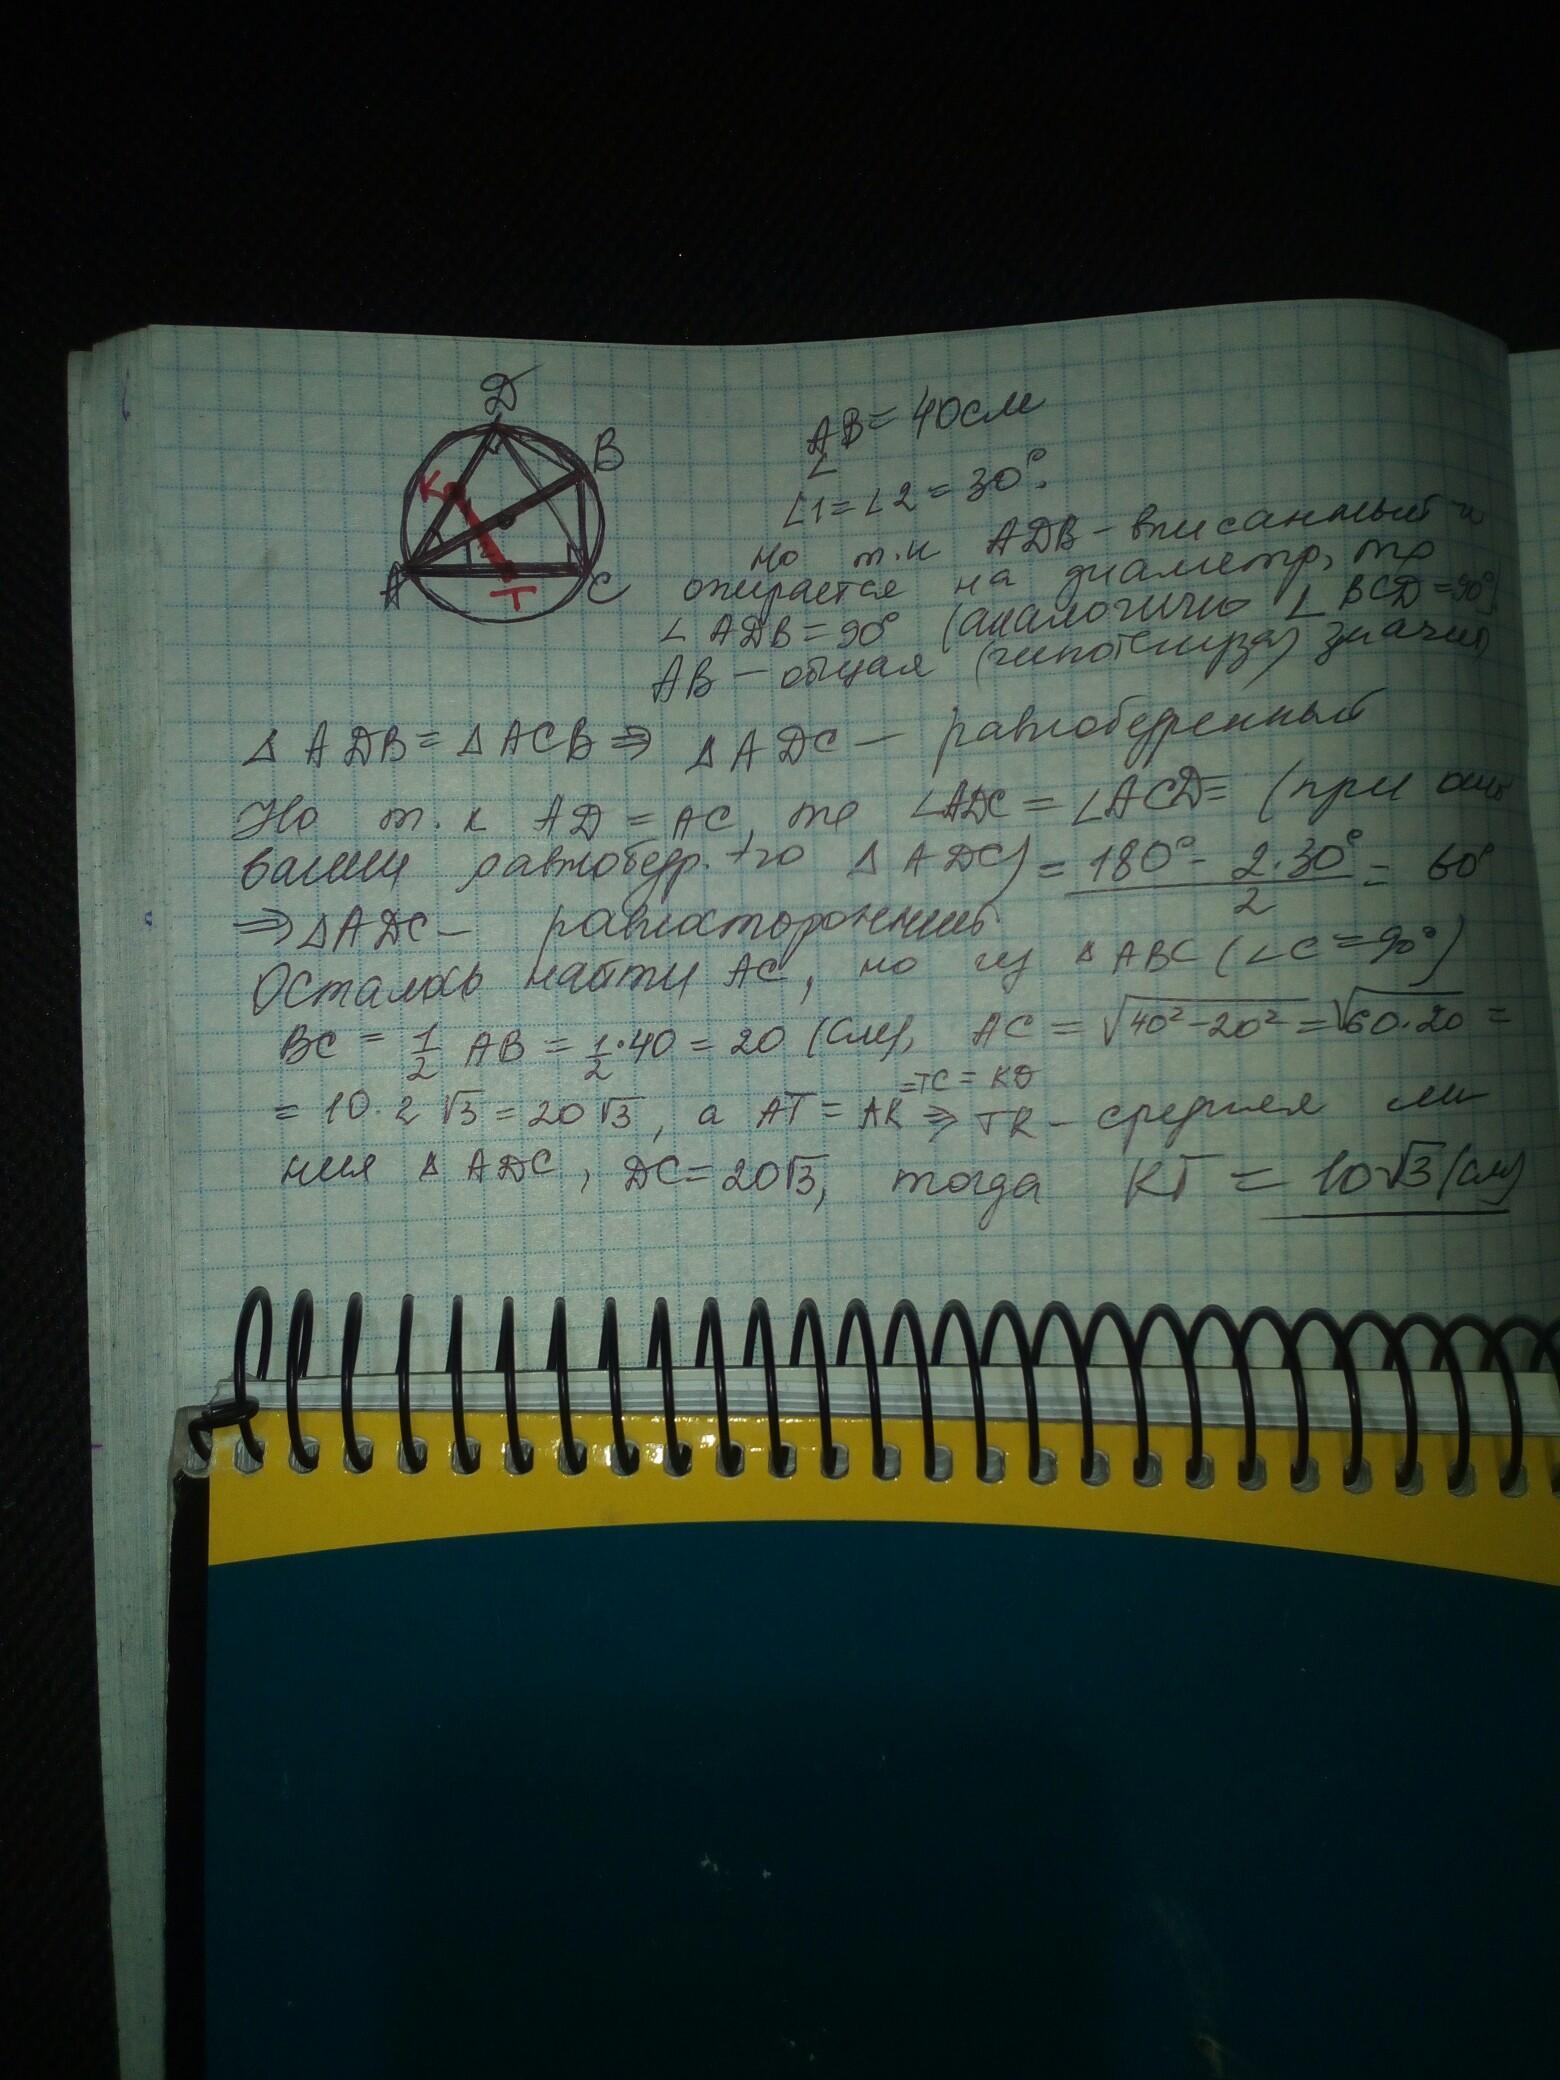 D
B
K
A
T
C
AB = 40см
∠
∠1 = ∠2 = 30°.
но т.к ADB - вписанный и
опирается на диаметр, то
∠ADB = 90° (аналогично ∠BCD = 90°)
AB - общая (гипотенуза) значит
Δ ADB = Δ ACB ⇒ Δ ADC - равнобедренный
Но т.к AD = AC, то ∠ADC = ∠ACD = (при осно
вании равнобедр. Δ ADC) = 180° - 2·30° / 2 = 60°
⇒ Δ ADC - равносторонний
Осталось найти AC, но из Δ ABC (∠C = 90°)
BC = 1/2 AB = 1/2·40 = 20 (см), AC = √40² - 20² = √60·20 =
= 10·2√3 = 20√3, а AT = AK = TC = KD ⇒ TK - средняя ли
ния Δ ADC, DC = 20√3, тогда KT = 10√3 (см)